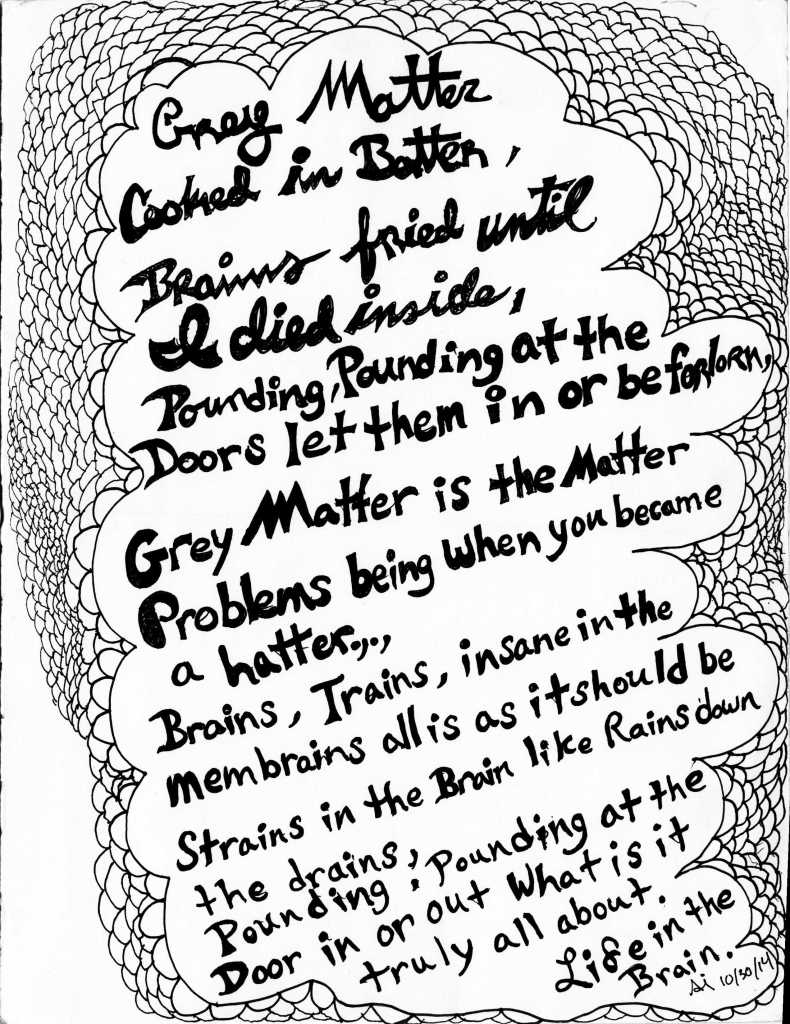 Grey Matter
Cooked in Batter,
Brains fried until
I died inside,
Pounding, Pounding at the
Doors let them in or be forlorn,
Grey Matter is the Matter
Problems being when you became
a hatter...,
Brains, Trains, insane in the
membrains all is as it should be
Strains in the Brain like Rains down
the drains,
Pounding, Pounding at the
Door in or out What is it
truly all about.
Life in the
Brain.
Ai 10/30/14